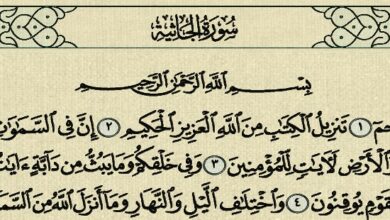 سُورَةُ الجَاثِيَةِ
بِسْمِ اللَّهِ الرَّحْمَٰنِ الرَّحِيمِ
حمٓ ١ تَنزِيلُ الْكِتَابِ مِنَ اللَّهِ الْعَزِيزِ الْحَكِيمِ ٢ إِنَّ فِي السَّمَاوَاتِ
الْأَرْضِ لَآيَاتٍ لِّلْمُؤْمِنِينَ ٣ وَفِي خَلْقِكُمْ وَمَا يَبُثُّ مِن دَابَّةٍ ءَايَاتٌ
لِّقَوْمٍ يُوقِنُونَ ٤ وَاخْتِلَافِ الَّيْلِ وَالنَّهَارِ وَمَا أَنزَلَ اللَّهُ مِنَ السَّمَا